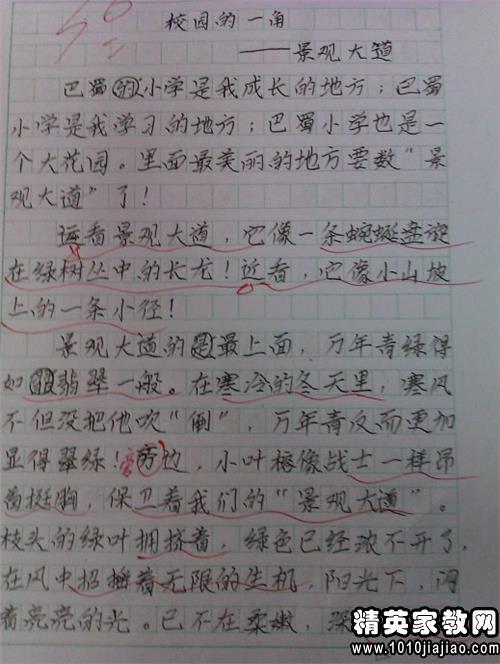 校园的一角
——景观大道
巴蜀的小学是我成长的地方；巴蜀
小学是我学习的地方；巴蜀小学也是一
个大花园。里面最美丽的地方要数“景
观大道”了！
远看景观大道，它像一条蜿蜒盘旋
在绿树丛中的长龙！近看，它像小山坡
上的一条小径！
景观大道的是最上面，万年青绿得
如翡翠一般。在寒冷的冬天里，寒风
不但没把他吹“倒”，万年青反而更加
显得翠绿！旁边，小叶榕像战士一样昂
首挺胸，保卫着我们的“景观大道”。
枝头的绿叶拥挤着，绿色已经浓不开了，
在风中招摇着无限的生机，阳光下，闪
着亮亮的光。已不在柔嫩，深
精英家教网
www.1010jiajiao.com